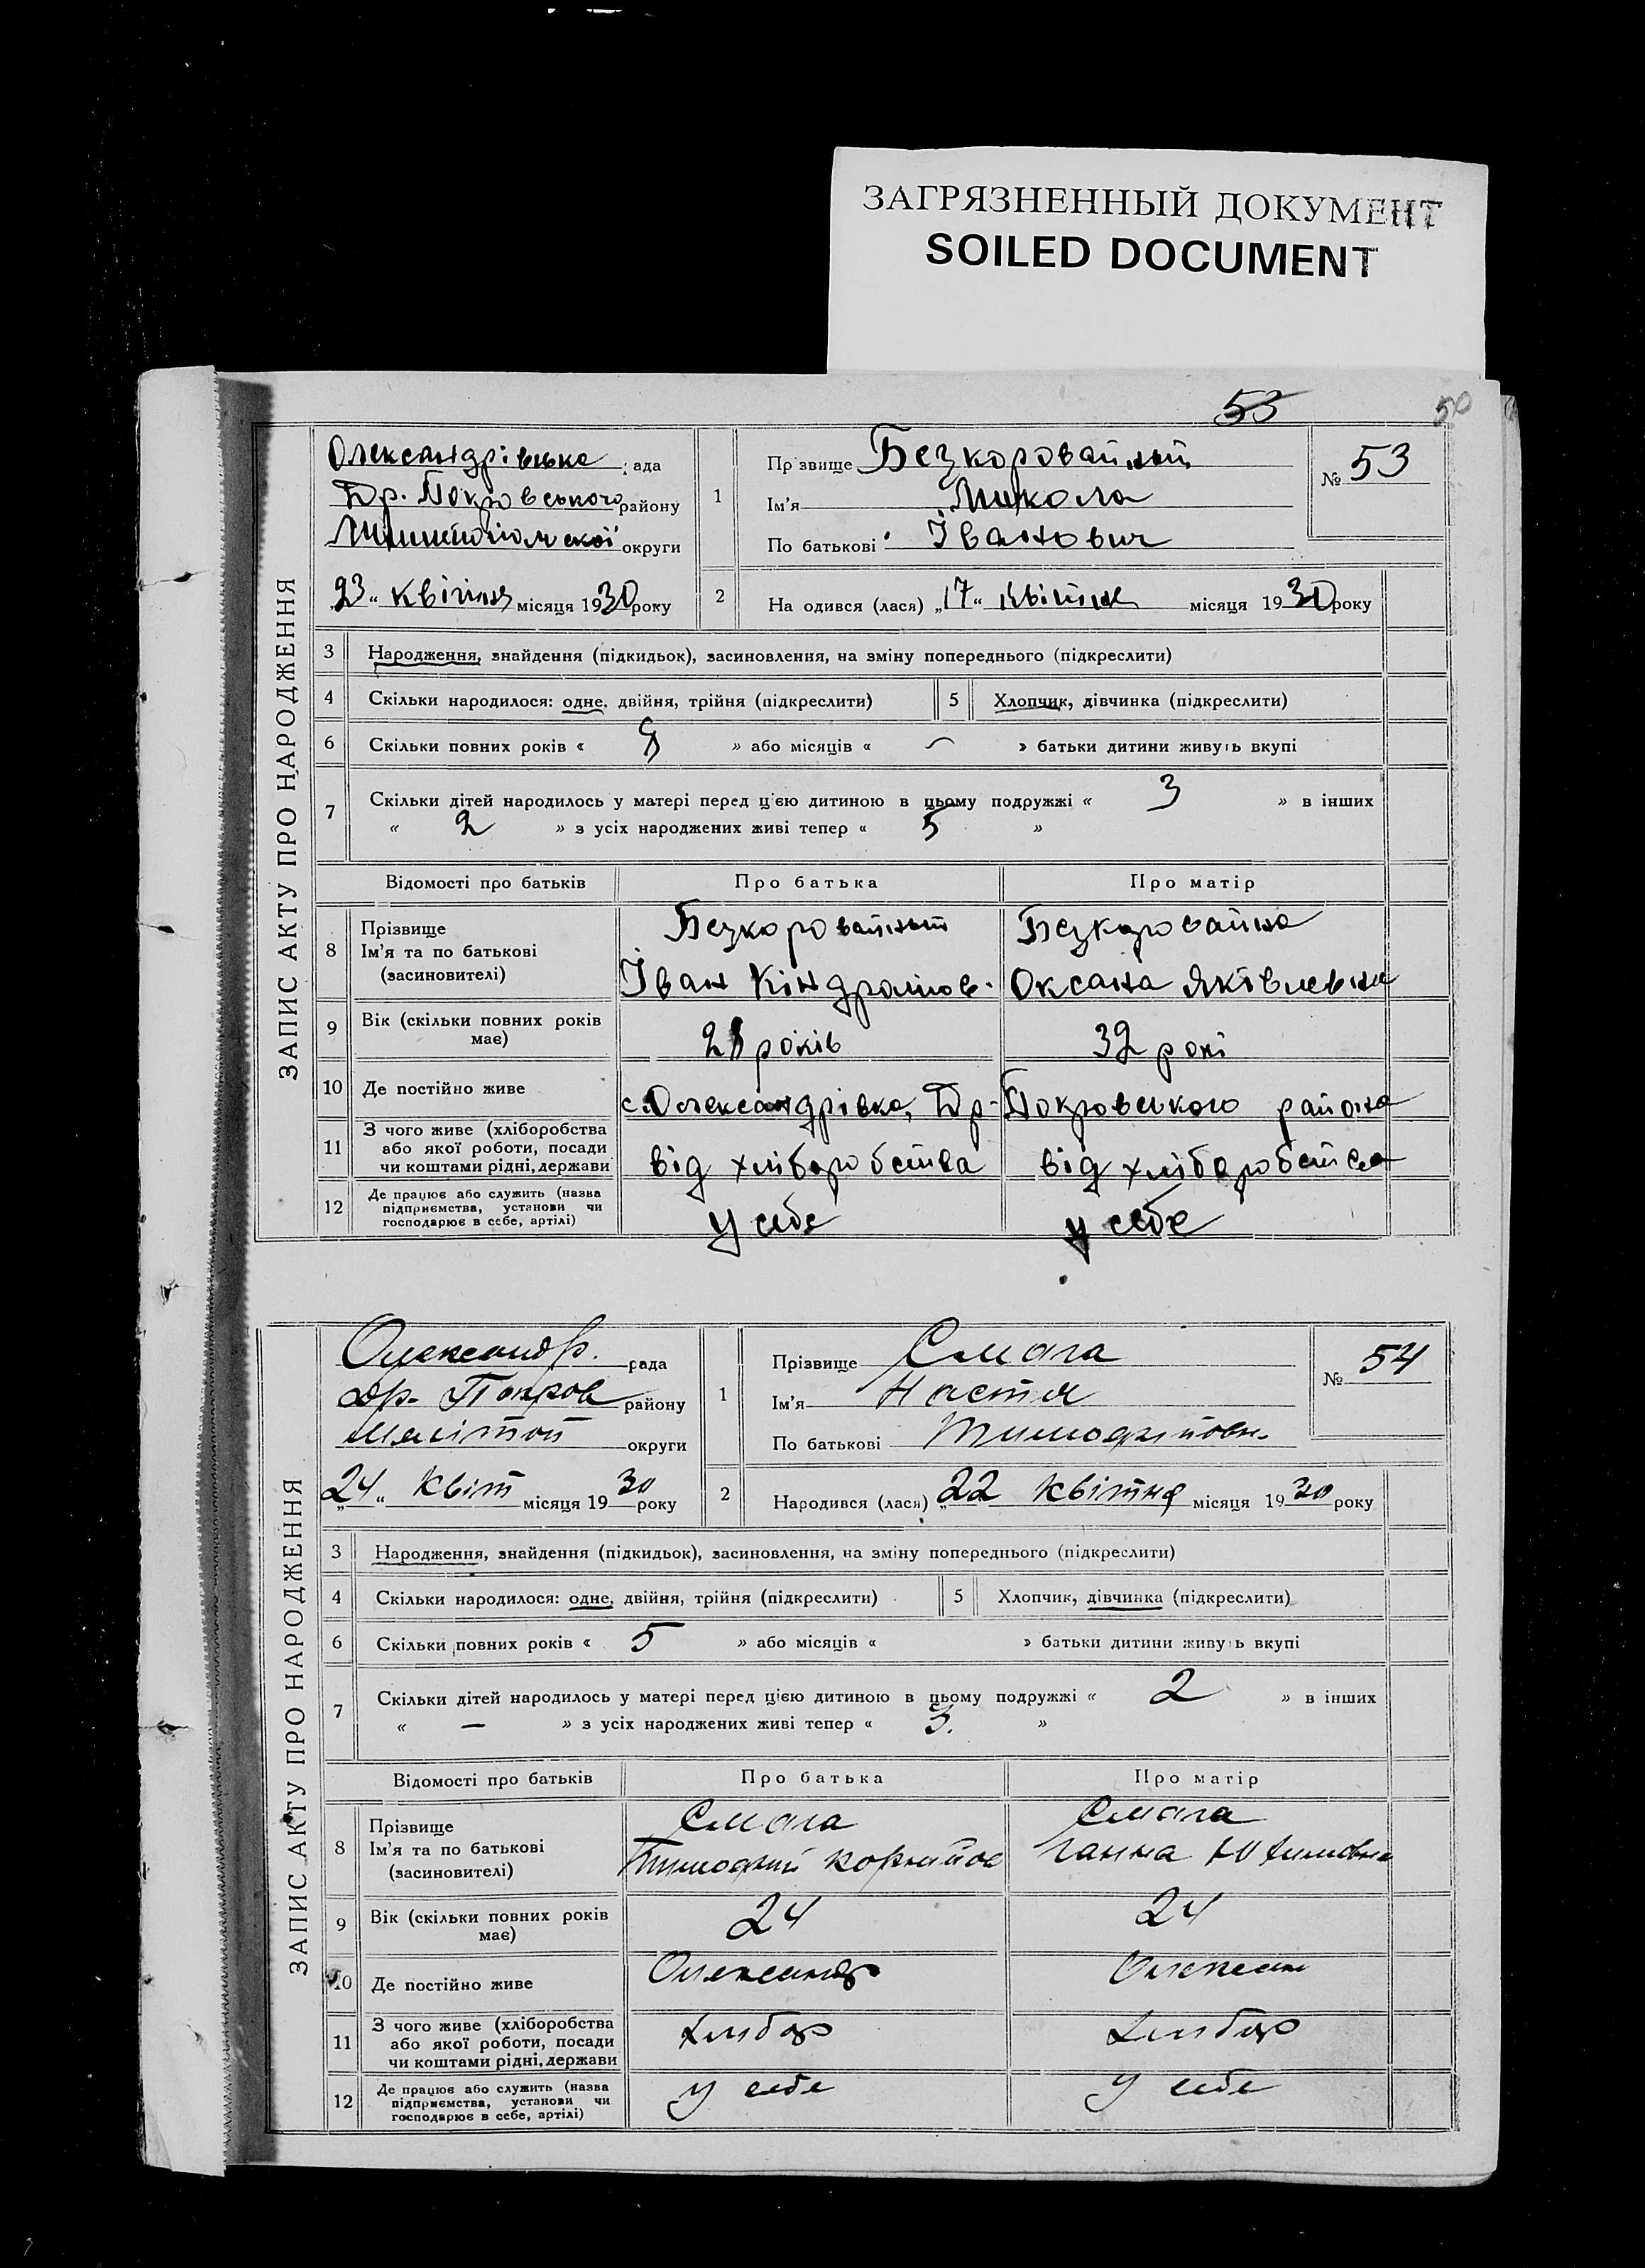 ЗАГРЯЗНЕННЫЙ ДОКУМЕНТ
SOILED DOCUMENT
53 50
ЗАПИС АКТУ ПРО НАРОДЖЕННЯ
Олександрівська рада
Др. Покровського району
округи
23 " квітня місяця 1930 року
1 Прізвище Безкоровайний
Ім'я Микола
По батькові Іванович
№ 53
2 На одився (лася) „17" квітня місяця 1930 року
3 Народження, знайдення (підкидьок), засиновлення, на зміну попереднього (підкреслити)
4 Скільки народилося: одне, двійня, трійня (підкреслити) 5 Хлопчик, дівчинка (підкреслити)
6 Скільки повних років « » або місяців « – » батьки дитини живуть вкупі
7 Скільки дітей народилось у матері перед цією дитиною в цьому подружжі « 3 » в інших
« 2 » з усіх народжених живі тепер « 5 »
Відомості про батьків Про батька Про матір
8 Прізвище
Ім'я та по батькові
(засновителі)
Безкоровайний
Іван Кіндратов.
Безкоровайна
Оксана Яківлевна
9 Вік (скільки повних років
має)
років 32 рокі
10 Де постійно живе с. Олександрівка, Др-Покровського района
11 З чого живе (хліборобства
або якої роботи, посади
чи коштами рідні, держави
від хліборобства від хліборобства
12 Де працює або служить (назва
підприємства, установи чи
господарює в себе, артілі)
у себе у себе
ЗАПИС АКТУ ПРО НАРОДЖЕННЯ
Олександр. рада
Др. Покров району
Мелітоп округи
„24" Квіт місяця 1930 року
1 Прізвище Смага
Ім'я Настя
По батькові Тимофійовн.
№ 54
2 Народився (лася) „22 Квітня місяця 1930 року
3 Народження, знайдення (підкидьок), засиновлення, на зміну попереднього (підкреслити)
4 Скільки народилося: одне, двійня, трійня (підкреслити) 5 Хлопчик, дівчинка (підкреслити)
6 Скільки повних років « 5 » або місяців « » батьки дитини живуть вкупі
7 Скільки дітей народилось у матері перед цією дитиною в цьому подружжі « 2 » в інших
« – » з усіх народжених живі тепер « 3. »
Відомості про батьків Про батька Про матір
8 Прізвище
Ім'я та по батькові
(засиновителі)
Смага
Тимофий Корнийов
Смага
Ганна Юхимовна
9 Вік (скільки повних років
має)
24 24
10 Де постійно живе Олександр Олександ
11 З чого живе (хліборобства
або якої роботи, посади
чи коштами рідні, держави
Хлібор Хлібор
12 Де працює або служить (назва
підприємства, установи чи
господарює в себе, артілі)
у себе у себе